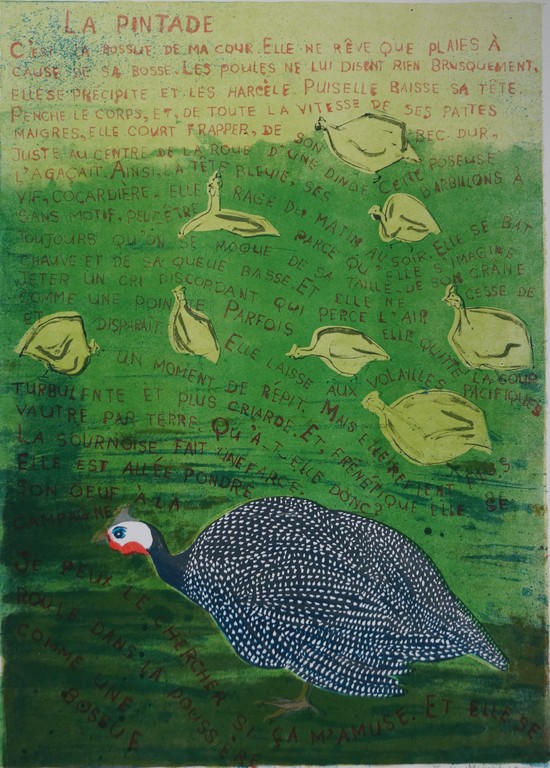 LA PINTADE
C'EST LA BOSSUE DE MA COUR. ELLE NE RÊVE QUE PLAIES À
CAUSE DE SA BOSSE. LES POULES NE LUI DISENT RIEN BRUSQUEMENT,
ELLE SE PRÉCIPITE ET LES HARCÈLE. PUIS ELLE BAISSE SA TÊTE.
PENCHE LE CORPS, ET, DE TOUTE LA VITESSE DE SES PATTES
MAIGRES, ELLE COURT FRAPPER, DE SON BEC DUR,
JUSTE AU CENTRE DE LA ROUE D'UNE DINDE. CETTE POSEUSE
L'AGAÇAIT. AINSI, LA TÊTE BLEUIE, SES BARBILLONS À
VIF, COCARDIÈRE, ELLE RAGE DU MATIN AU SOIR. ELLE SE BAT
SANS MOTIF, PEUT ÊTRE PARCE QU'ELLE S'IMAGINE
TOUJOURS QU'ON SE MOQUE DE SA TAILLE, DE SON CRANE
CHAUVE ET DE SA QUEUE BASSE. ET ELLE NE CESSE DE
JETER UN CRI DISCORDANT QUI PERCE L'AIR
COMME UNE POINTE. PARFOIS ELLE QUITTE LA COUR
ET DISPARAÎT. ELLE LAISSE AUX VOLAILLES PACIFIQUES
UN MOMENT DE RÉPIT. MAIS ELLE REVIENT PLUS
TURBULENTE ET PLUS CRIARDE. ET FRÉNÉTIQUE ELLE SE
VAUTRE PAR TERRE. QU'A T-ELLE DONC?
LA SOURNOISE FAIT UNE FARCE.
ELLE EST ALLÉE PONDRE
SON OEUF À LA
CAMPAGNE.
JE PEUX LE CHERCHER SI ÇA M'AMUSE. ET ELLE SE
ROULE DANS LA POUSSIÈRE
COMME UNE
BOSSUE